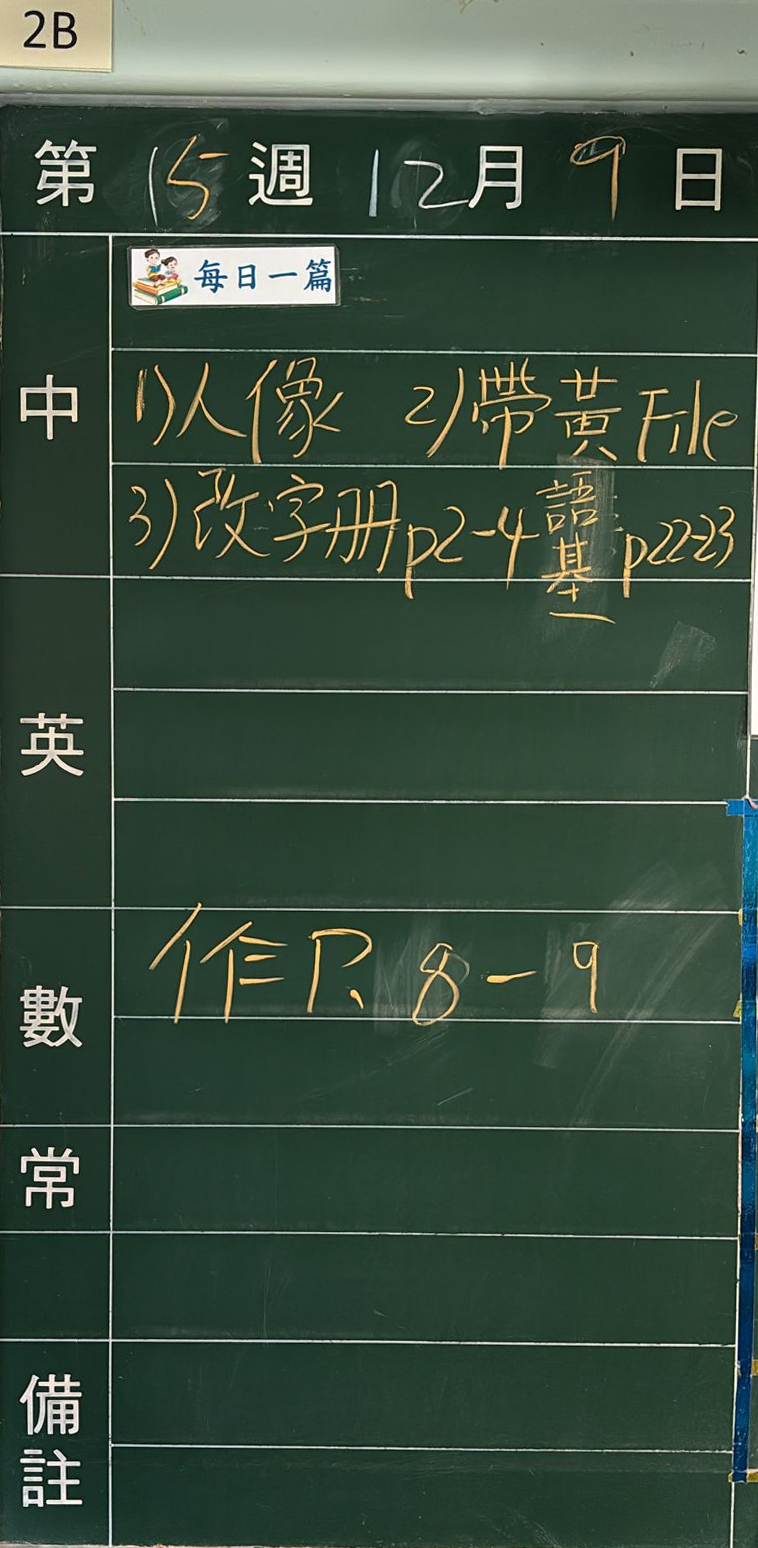 2B
第 15 週 12 月 9 日
每日一篇
中
1)人像 2)帶黃File
3)改字册p2-4 語基一 p22-23
英
數
作P. 8-9
常
備註